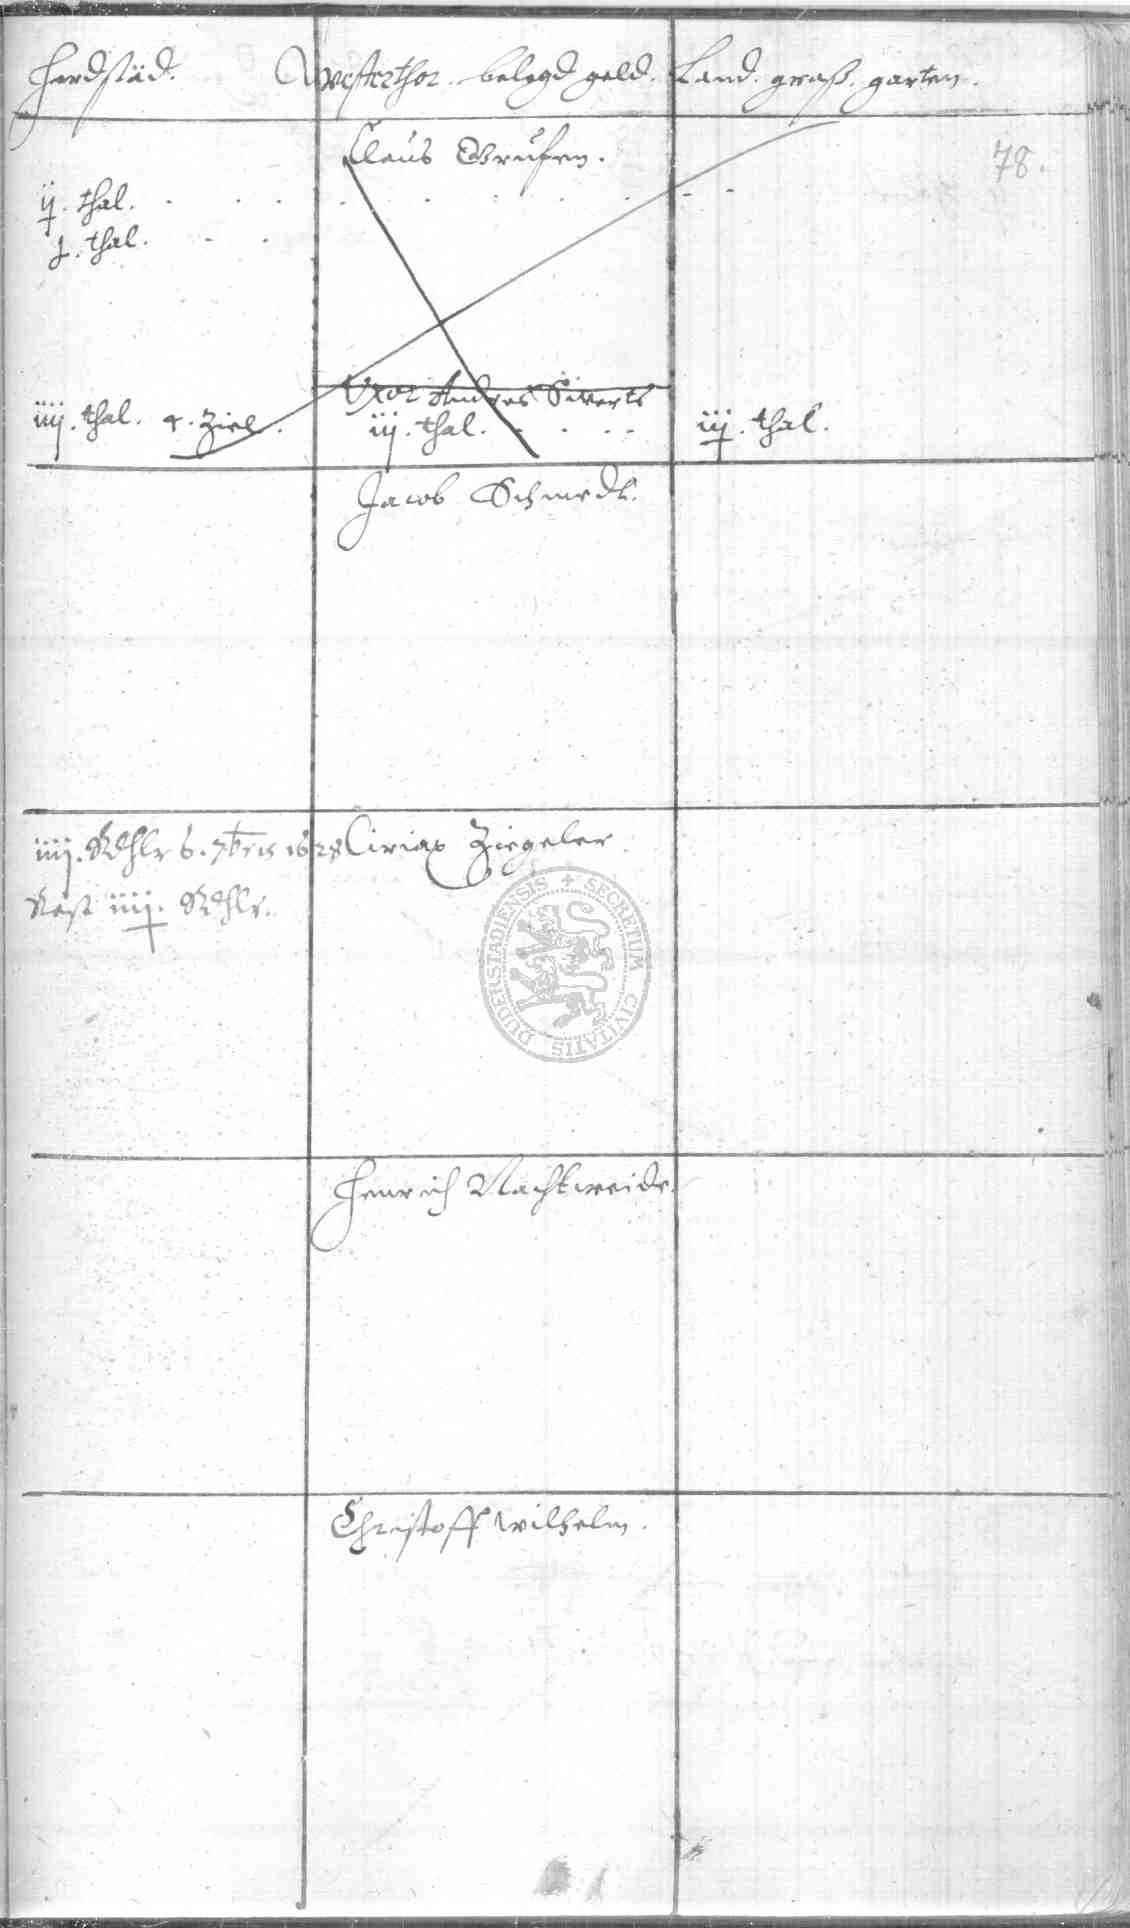 Herdstäd. Westerthor. belegd geld. Land. graß. garten.
78.
Claus Grusen.
ij. thal.
j. thal.
Uxor Andres Siverts
iiij. thal. 4. Ziel. iij. thal. iij. thal.
Jacob Schmedt.
iiij. Rthlr 6. 7bris 1628 Ciriax Ziegeler.
Rest iiij. Rthlr.
DUDERSTADIENSIS + SECRETUM CIVITATIS
Henrich Nachtweide.
Christoff Wilhelm.